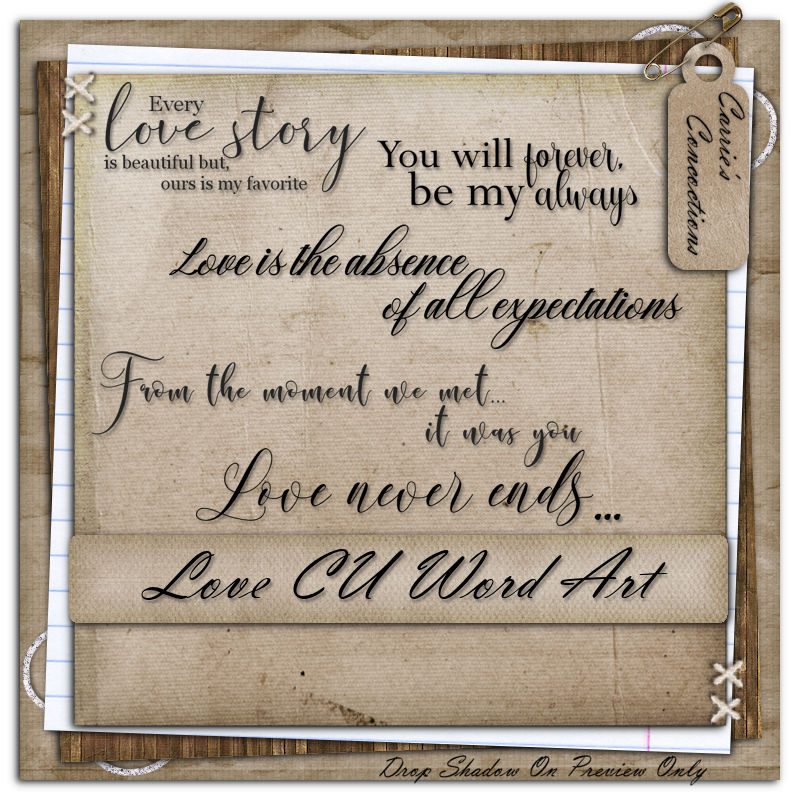 Every
love story
is beautiful but,
ours is my favorite
You will forever,
be my always
Love is the absence
of all expectations
From the moment we met...
it was you
Love never ends...
Love CU Word Art
Carrie's
Concoctions
Drop Shadow On Preview Only